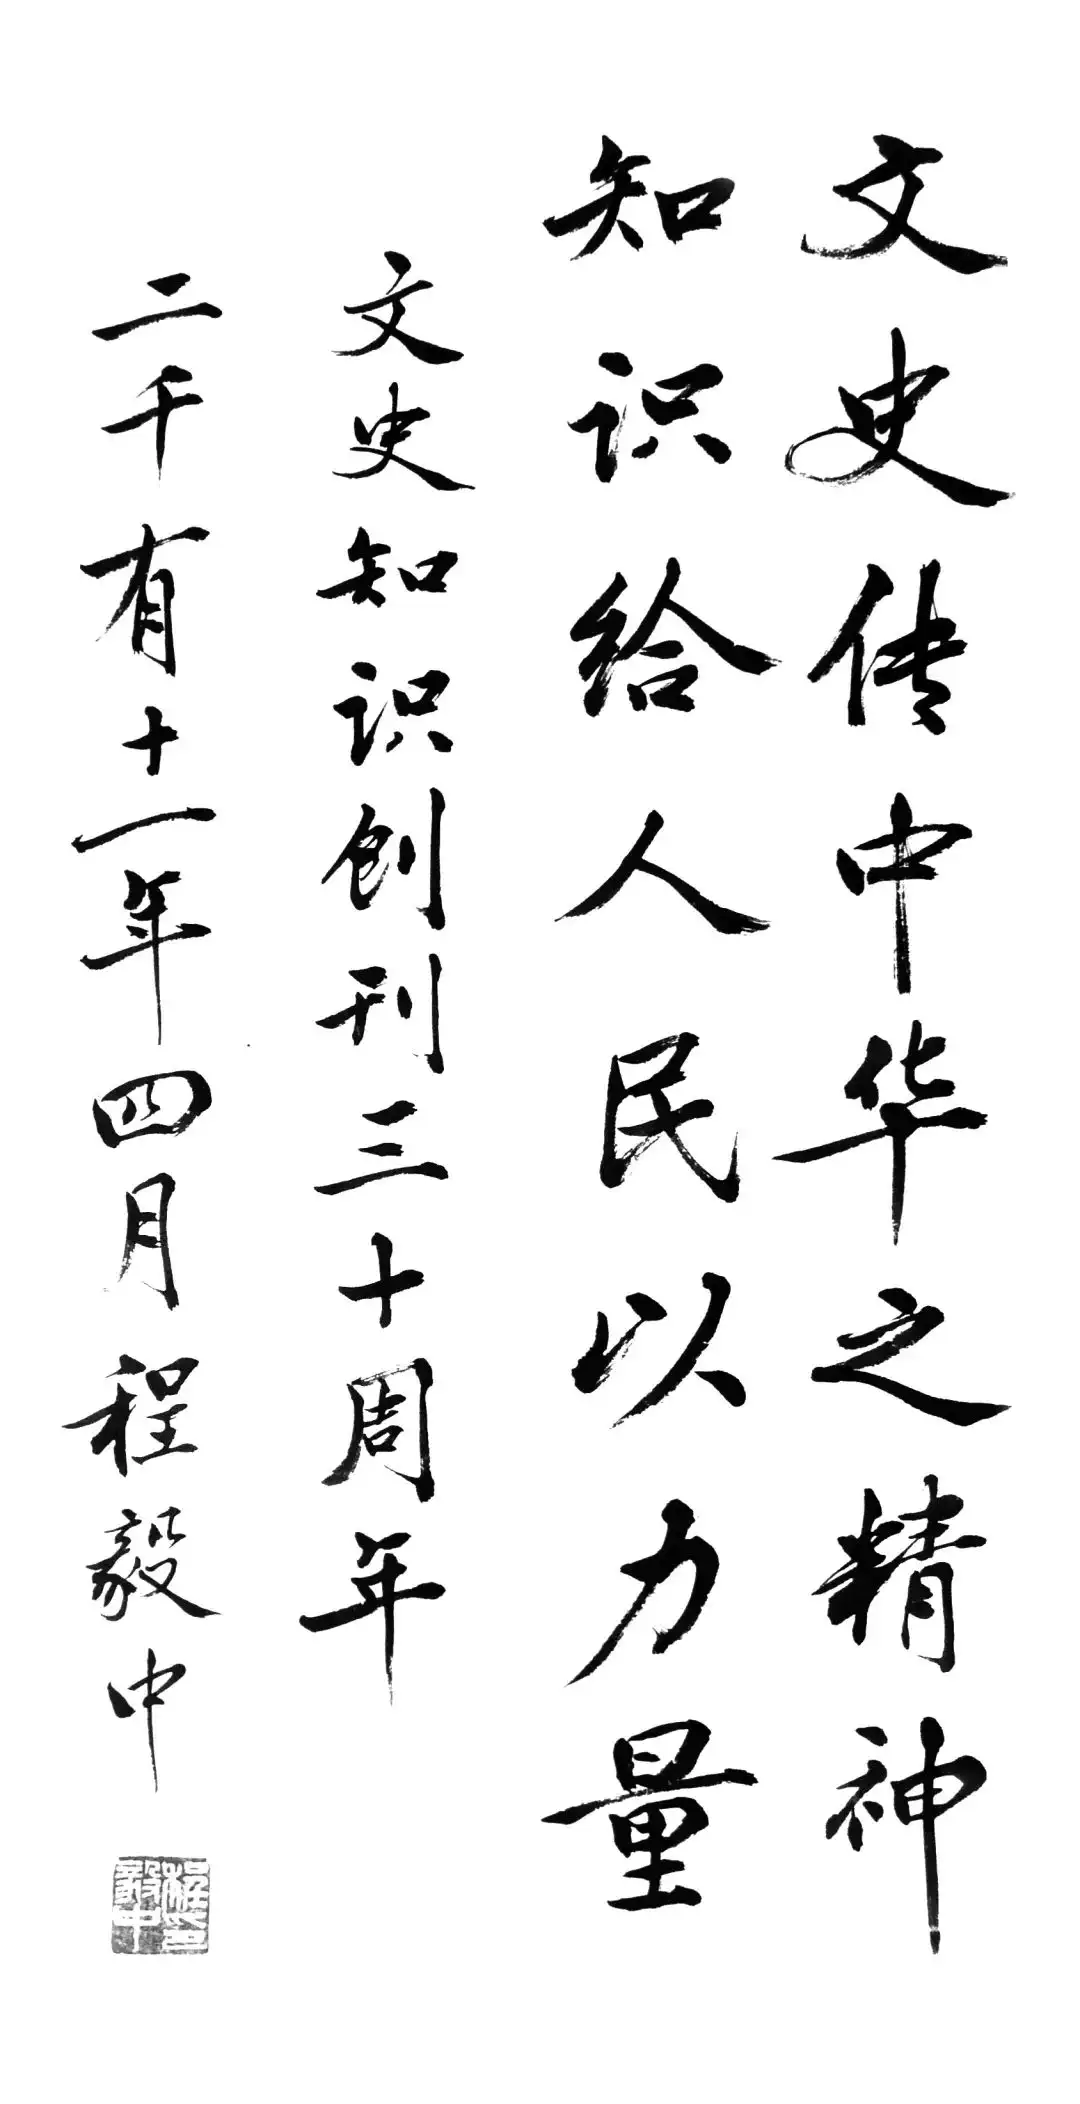 文史传中华之精神
知识给人民以力量
文史知识创刊三十周年
二千有十一年四月程毅中
程毅中印